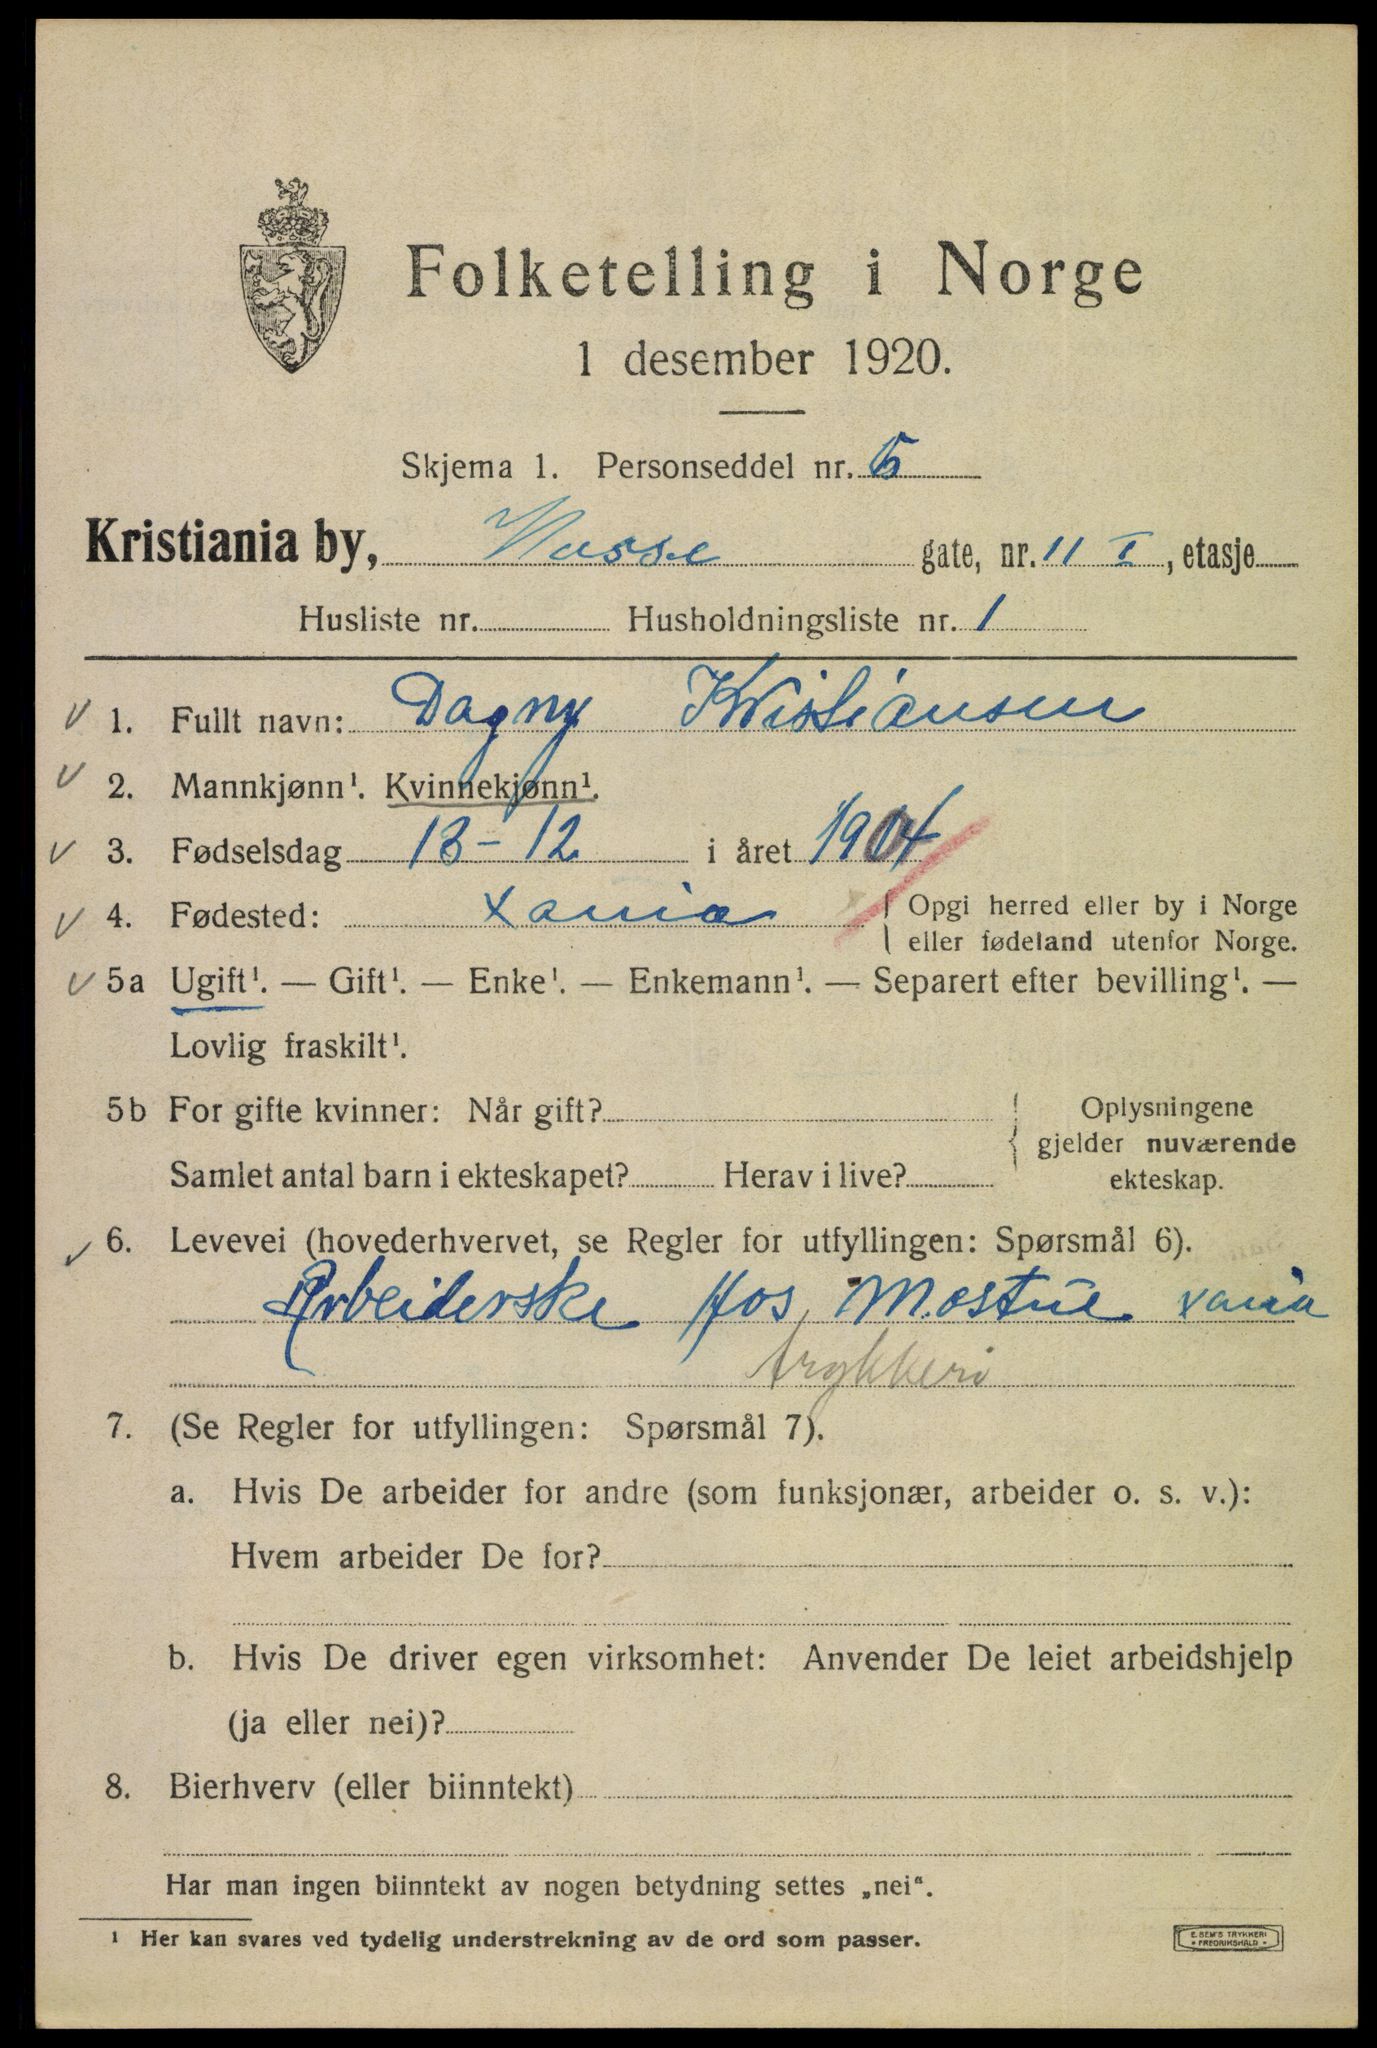 Folketelling i Norge
1 desember 1920.
Skjema 1. Personseddel nr. 5
Kristiania by, Wasse gate, nr. 11 I, etasje
Husliste nr. Husholdningsliste nr. 1
1. Fullt navn: Dagny Kristiansen
2. Mannkjønn¹. Kvinnekjønn¹.
3. Fødselsdag 13-12 i året 1904
4. Fødested: Xania { Opgi herred eller by i Norge
eller fødeland utenfor Norge.
5a Ugift¹. — Gift¹. — Enke¹. — Enkemann¹. — Separert efter bevilling¹. —
Lovlig fraskilt¹.
5b For gifte kvinner: Når gift? Oplysningene
gjelder nuværende
Samlet antal barn i ekteskapet? Herav i live? ekteskap.
6. Levevei (hovederhvervet, se Regler for utfyllingen: Spørsmål 6).
Arbeiderske Hos Mostue Xania
trykkeri
7. (Se Regler for utfyllingen: Spørsmål 7).
a. Hvis De arbeider for andre (som funksjonær, arbeider o. s. v.):
Hvem arbeider De for?
b. Hvis De driver egen virksomhet: Anvender De leiet arbeidshjelp
(ja eller nei)?
8. Bierhverv (eller biinntekt)
Har man ingen biinntekt av nogen betydning settes „nei".
¹ Her kan svares ved tydelig understrekning av de ord som passer.
E. SEM'S TRYKKERI
• FREDRIKSHALD •